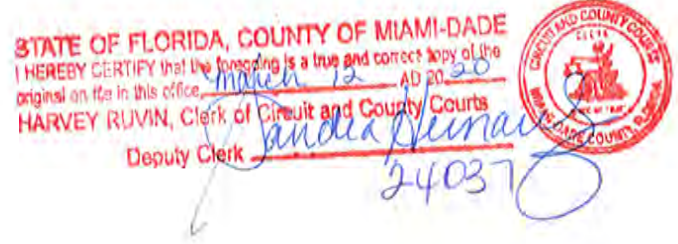 STATE OF FLORIDA, COUNTY OF MIAMI-DADE
I HEREBY CERTIFY that the foregoing is a true and correct copy of the
original on file in this office, March 12 AD 20 20
HARVEY RUVIN, Clerk of Circuit and County Courts
Deputy Clerk Sandra
24037
CIRCUIT AND COUNTY COURTS
CLERK
MIAMI-DADE COUNTY, FLORIDA